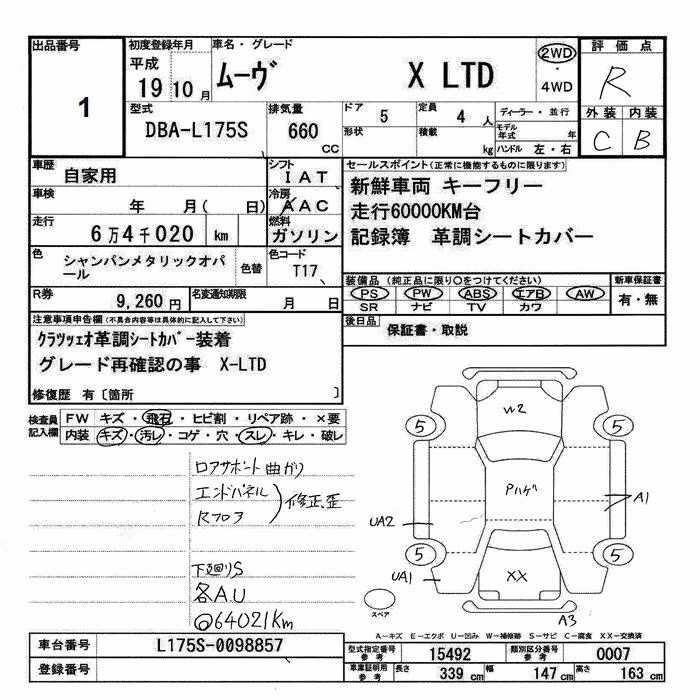 出品番号 初度登録年月 車名・グレード 2WD 評価点
1 平成 19 10月 ムーヴ X LTD ・ 4WD R
型式 排気量 ドア 定員 ディーラー・並行 外装 内装
DBA-L175S 660 CC 5 4 人 モデル年式 年 C B
形状 積載 kg ハンドル 左・右
車歴 自家用 シフト IAT セールスポイント(正常に機能するものに限ります)
車検 年 月( 日) 冷房 AAC 新鮮車両 キーフリー
走行 6万4千020 km 燃料 ガソリン 走行60000KM台
記録簿 革調シートカバー
色 シャンパンメタリックオパール 色替 色コード T17
装備品(純正品に限り○をつけてください) 新車保証書
R券 9,260円 名変通知期限 月 日 PS PW ABS エアB AW 有・無
SR ナビ TV カワ
注意事項申告欄(不具合内容等は具体的に記入して下さい) 後日品 保証書・取説
クラッツェオ革調シートカバー装着
グレード再確認の事 X-LTD
修復歴 有〔箇所 〕
検査員記入欄 FW キズ・飛石・ヒビ割・リペア跡・×要
内装 キズ・汚レ・コゲ・穴・スレ・キレ・破レ
ロアサポート曲がり
エンドパネル
Rフロア 修正、歪
下廻りS
各A.U
@64021Km
W2
5 5
Pハゲ
A1
UA2
5 5
UA1 XX
スペア
A3
A―キズ E―エクボ U―凹み W―補修跡 S―サビ C―腐食 XX―交換済
車台番号 L175S-0098857 型式指定番号 参考 15492 類別区分番号 参考 0007
登録番号 車庫証明用 参考 長さ 339 cm 幅 147 cm 高さ 163 cm